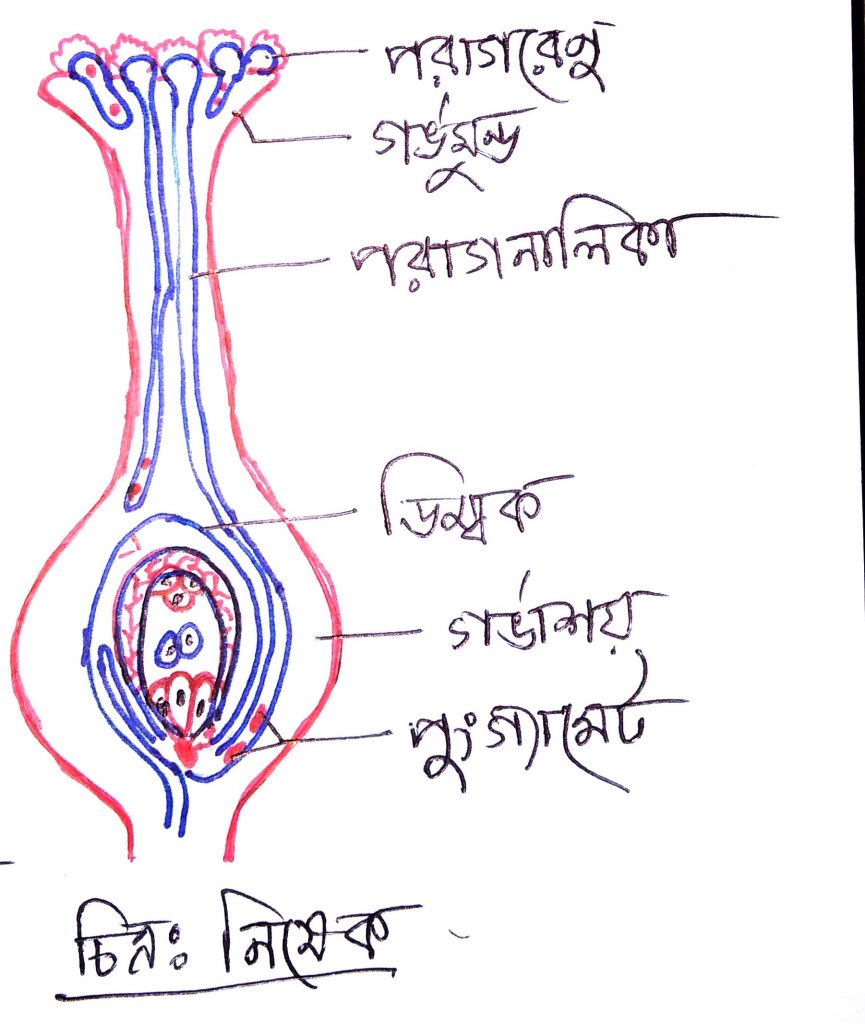 পরাগরেনু
গর্ভমুন্ড
পরাগনালিকা
ডিম্বক
গর্ভাশয়
পুংগ্যামেট
চিত্র: নিষেক